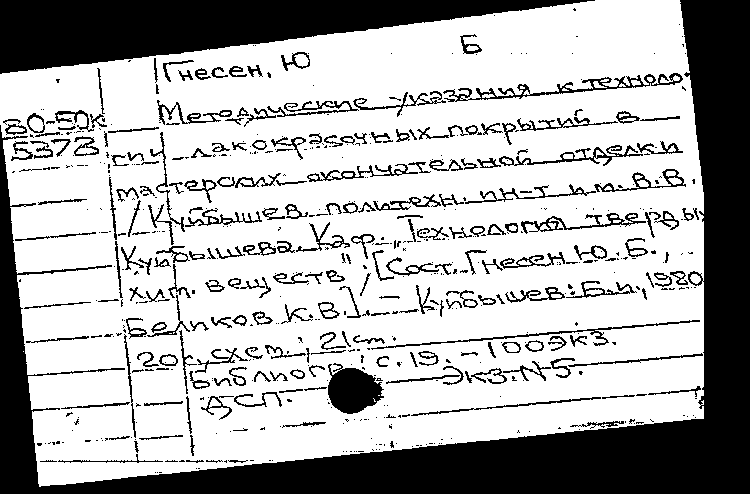 Гнесен, Ю Б
80-50к Методические указания к техноло-
5373 гии лакокрасочных покрытий в
мастерских окончательной отделки
/ Куйбышев. политехн. ин-т им. В.В.
Куйбышева. Каф. „Технология тверды
хим. веществ"; [Сост. Гнесен Ю.Б.,
Беликов К.В.]. — Куйбышев: Б.и., 1980
20с, схем.; 21см.
Библиогр.: с.19. — 100экз.
ДСП. Экз.N5.